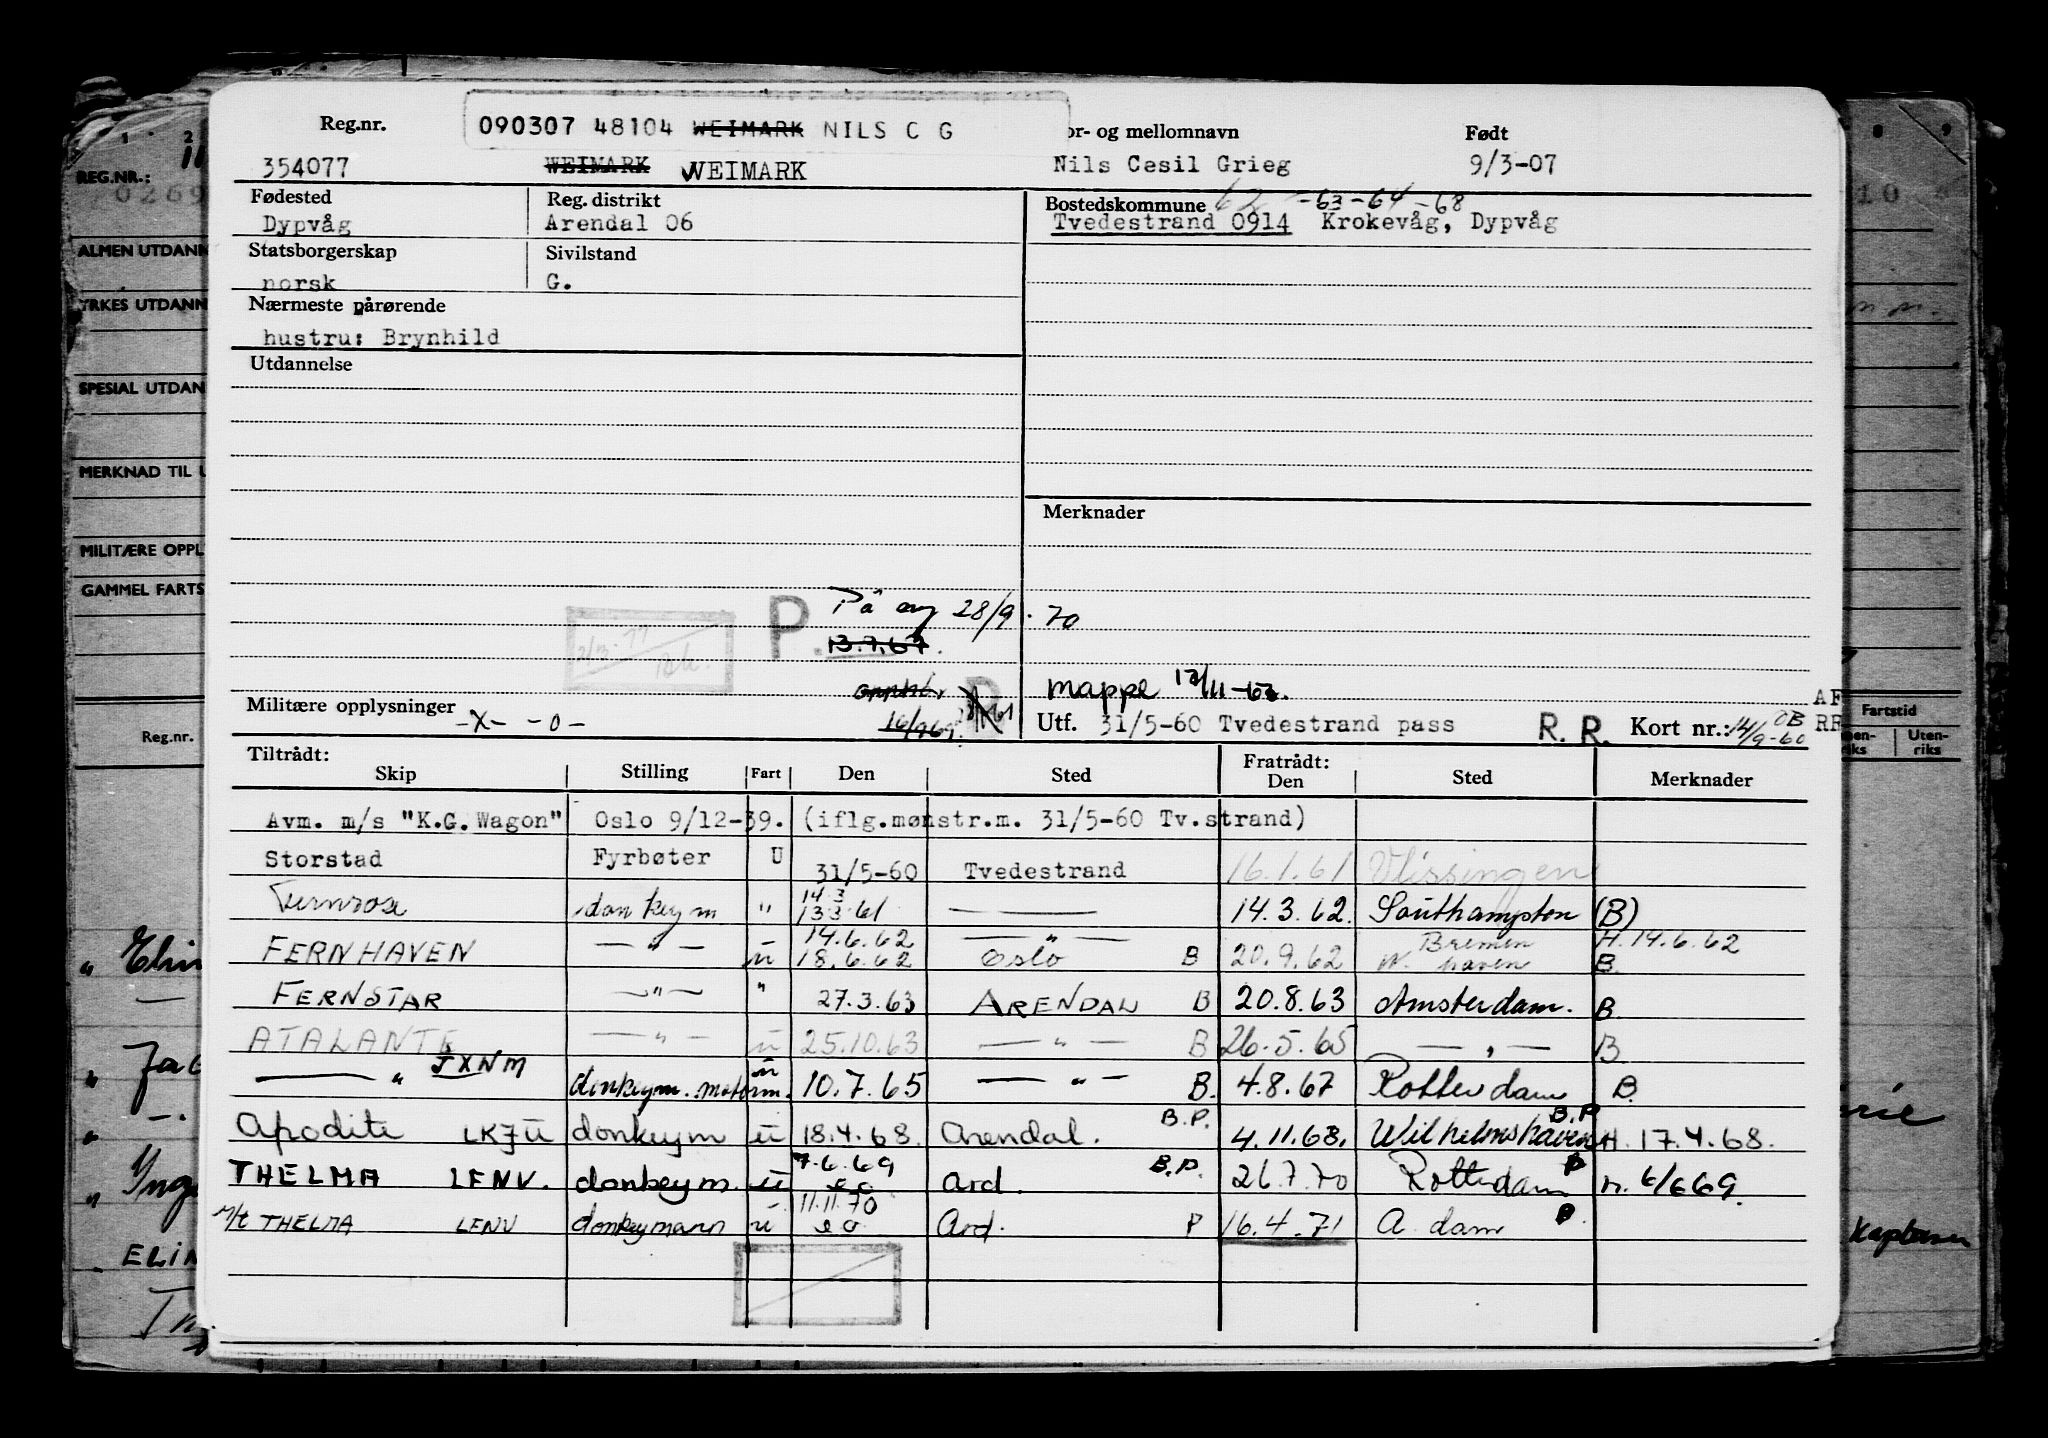 Reg.nr.
090307 48104 WEIMARK NILS C G
or- og mellomnavn
Født
354077
WEIMARK WEIMARK
Nils Cesil Grieg
9/3-07
Fødested
Reg. distrikt
Bostedskommune 62 -63-64-68
Dypvåg
Arendal 06
Tvedestrand 0914 Krokevåg, Dypvåg
Statsborgerskap
Sivilstand
norsk
G.
Nærmeste pårørende
hustru: Brynhild
Utdannelse
Merknader
P. På 28/9-70
13.7.67.
mappe
Militære opplysninger -X- -0-
Utf. 31/5-60 Tvedestrand pass R. R. Kort nr.: 14/9-60 OB
Tiltrådt:
Skip Stilling Fart Den Sted
Fratrådt:
Den Sted Merknader
Avm. m/s "K.G. Wagon" Oslo 9/12-39. (iflg.mønstr.m. 31/5-60 Tv.strand)
Storstad Fyrbøter U 31/5-60 Tvedestrand 16.1.61 Vlissingen
Fernrose donkeym " 14.3 13.3.61 — 14.3.62. Southampton (B)
FERNHAVEN — " — u 14.6.62 18.6.62 — " — Oslo B 20.9.62 Bremen haven H. 14.6.62 B.
FERNSTAR — " — " 27.3.63 ARENDAL B 20.8.63 Amsterdam. B.
ATALANTE — " — u 25.10.63 — " — B 26.5.65 — " — B
— " JXNM donkeym. motorm. u 10.7.65 — " — B. 4.8.67 Rotterdam B.
Apodite LKJU donkeym u 18.4.68. Arendal. B.P. 4.11.68. Wilhelmshaven B.P H. 17.4.68.
THELMA LFNV. donkeym. u 7.6.69 Ard. B.P. 26.7.70 Rotterdam P n. 6/6 69.
M/t THELMA LFNV donkeymann u 11.11.70 Ard. P 16.4.71 A dam P.
REG.NR.:
0269
ALMEN UTDANN
YRKES UTDANN
SPESIAL UTDAN
MERKNAD TIL U
MILITÆRE OPPL
GAMMEL FARTS
Reg.nr.
Fartstid
Uten-
riks
Kaptein